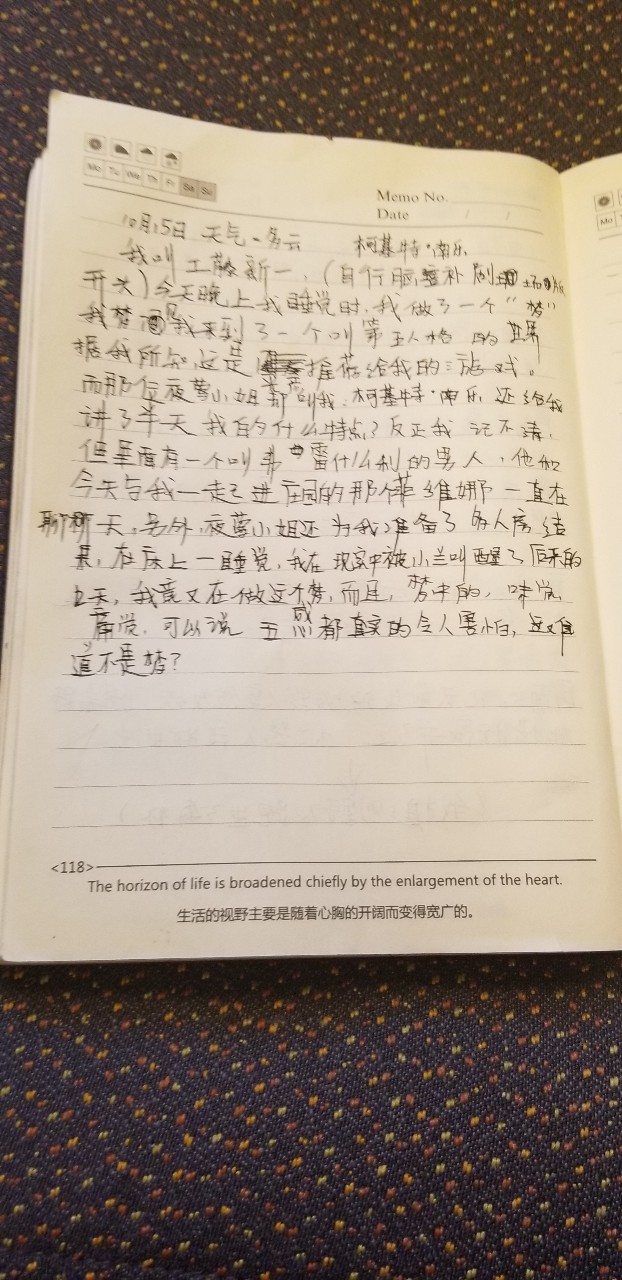 Mo Tu We Th Fr Sa Su
Memo No.
Date / /
10月15日 天气-多云 柯基特·南乐
我叫工藤新一,(自行脑补剧场版
开头)今天晚上我睡觉时,我做了一个“梦”
我梦见我来到了一个叫第五人格的世界
据我所知,这是推荐给我的游戏。
而那位夜莺小姐却叫我柯基特·南乐还给我
讲了半天我的什么特点?反正我记不清,
但里面有一个叫弗雷什么利的男人,他和
今天与我一起进庄园的那个菲维娜一直在
聊天,另外,夜莺小姐还为我准备了多人房结
果,在床上一睡觉,我在现实中被小兰叫醒了后来的
天,我竟又在做这个梦,而且,梦中的,味觉,
痛觉,可以说五感都真实的令人害怕,这难
道不是梦?
<118>
The horizon of life is broadened chiefly by the enlargement of the heart.
生活的视野主要是随着心胸的开阔而变得宽广的。
Mo